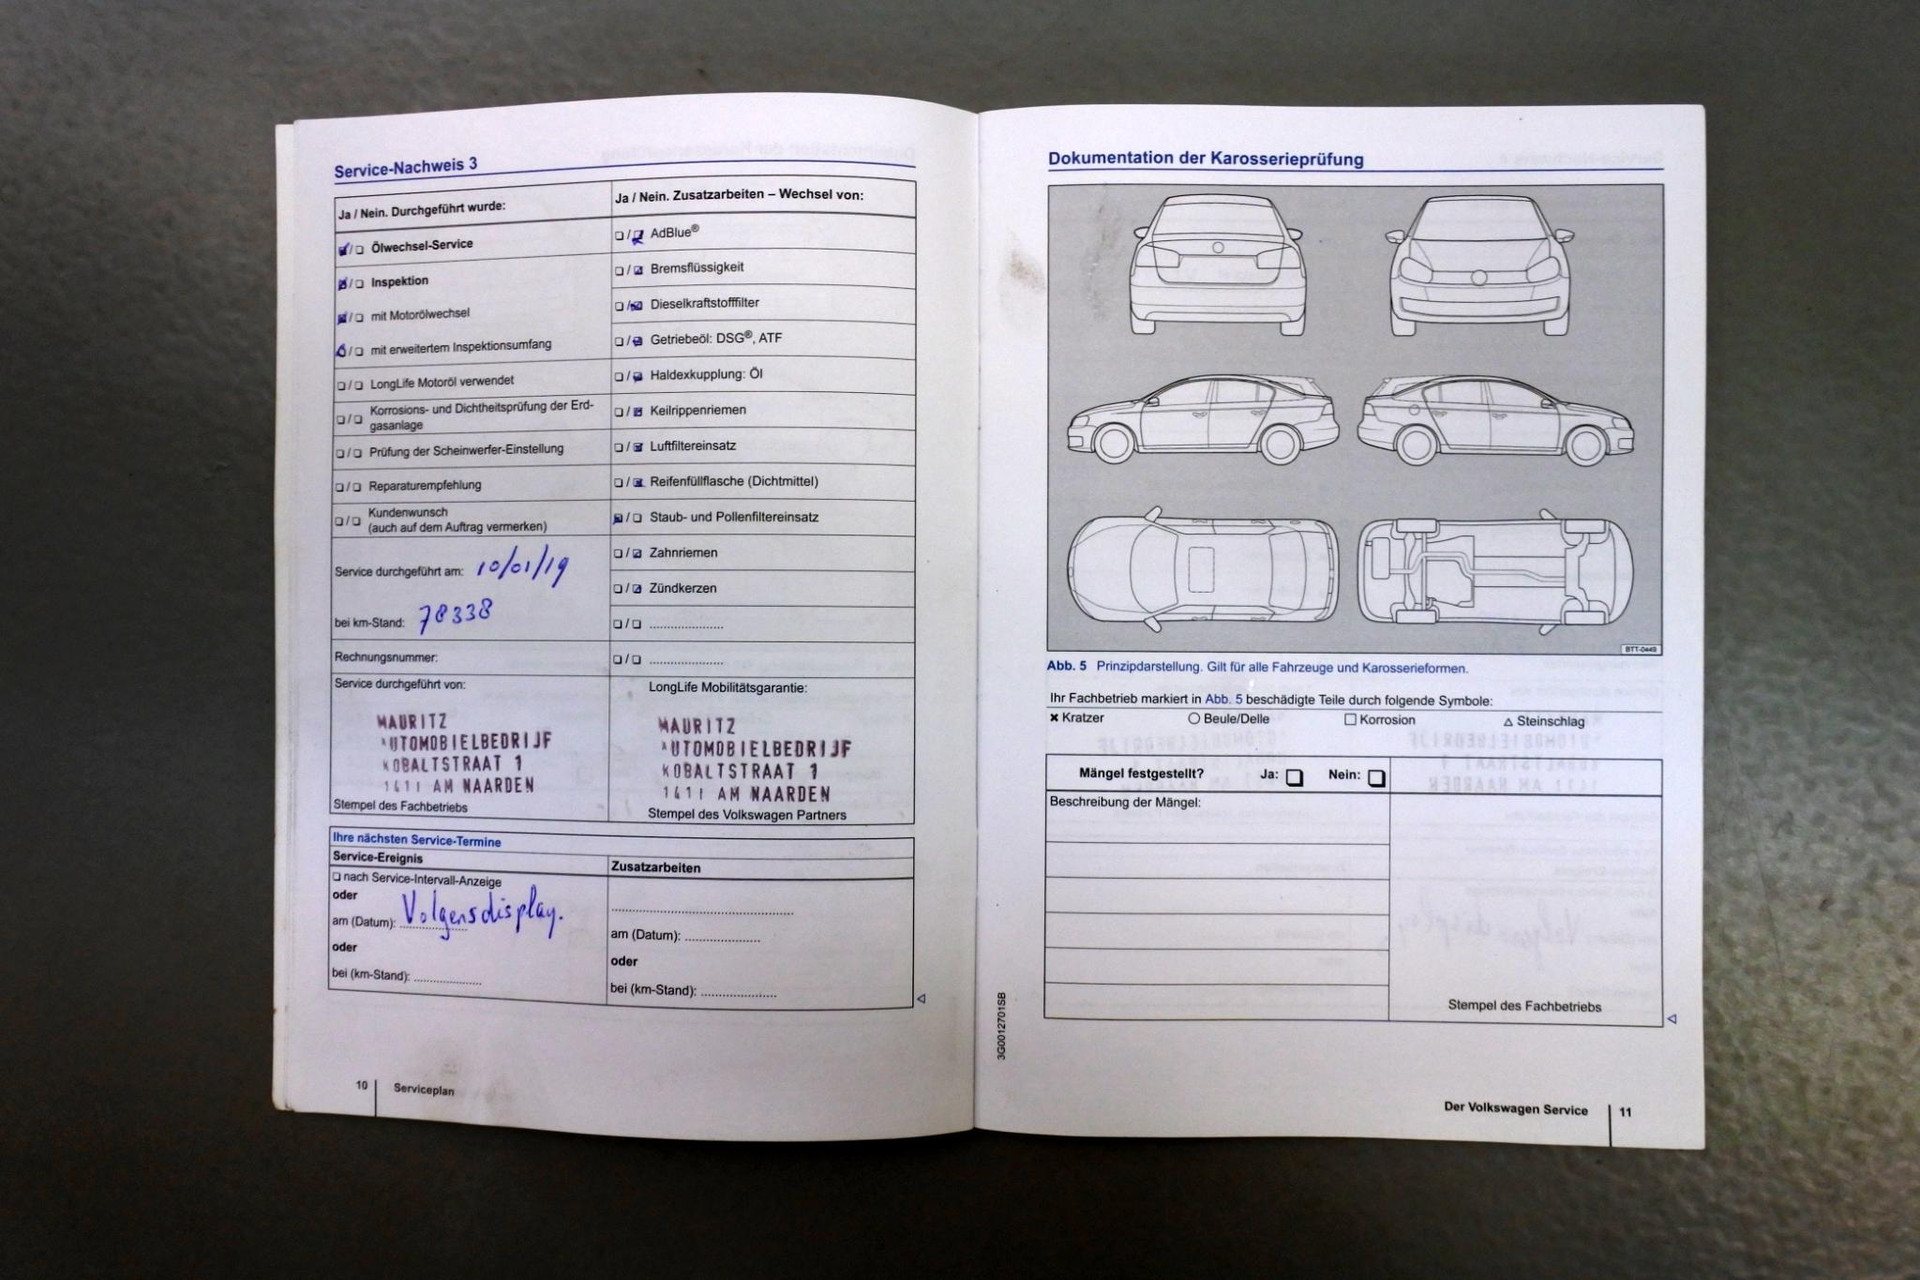 Service-Nachweis 3
Ja / Nein. Durchgeführt wurde:
Ölwechsel-Service
Inspektion
mit Motorölwechsel
mit erweitertem Inspektionsumfang
LongLife Motoröl verwendet
Korrosions- und Dichtheitsprüfung der Erd-
gasanlage
Prüfung der Scheinwerfer-Einstellung
Reparaturempfehlung
Kundenwunsch
(auch auf dem Auftrag vermerken)
Service durchgeführt am: 10/01/19
bei km-Stand: 78338
Rechnungsnummer:
Ja / Nein. Zusatzarbeiten – Wechsel von:
AdBlue®
Bremsflüssigkeit
Dieselkraftstofffilter
Getriebeöl: DSG®, ATF
Haldexkupplung: Öl
Keilrippenriemen
Luftfiltereinsatz
Reifenfüllflasche (Dichtmittel)
Staub- und Pollenfiltereinsatz
Zahnriemen
Zündkerzen
Service durchgeführt von:
MAURITZ
AUTOMOBIELBEDRIJF
KOBALTSTRAAT 1
1411 AM NAARDEN
Stempel des Fachbetriebs
LongLife Mobilitätsgarantie:
MAURITZ
AUTOMOBIELBEDRIJF
KOBALTSTRAAT 1
1411 AM NAARDEN
Stempel des Volkswagen Partners
Ihre nächsten Service-Termine
Service-Ereignis
nach Service-Intervall-Anzeige
oder
am (Datum): Volgens display.
oder
bei (km-Stand):
Zusatzarbeiten
am (Datum):
oder
bei (km-Stand):
10 Serviceplan
Dokumentation der Karosserieprüfung
BTT-0449
Abb. 5 Prinzipdarstellung. Gilt für alle Fahrzeuge und Karosserieformen.
Ihr Fachbetrieb markiert in Abb. 5 beschädigte Teile durch folgende Symbole:
× Kratzer ○ Beule/Delle □ Korrosion △ Steinschlag
Mängel festgestellt? Ja: Nein:
Beschreibung der Mängel:
Stempel des Fachbetriebs
3G0012701SB
Der Volkswagen Service 11